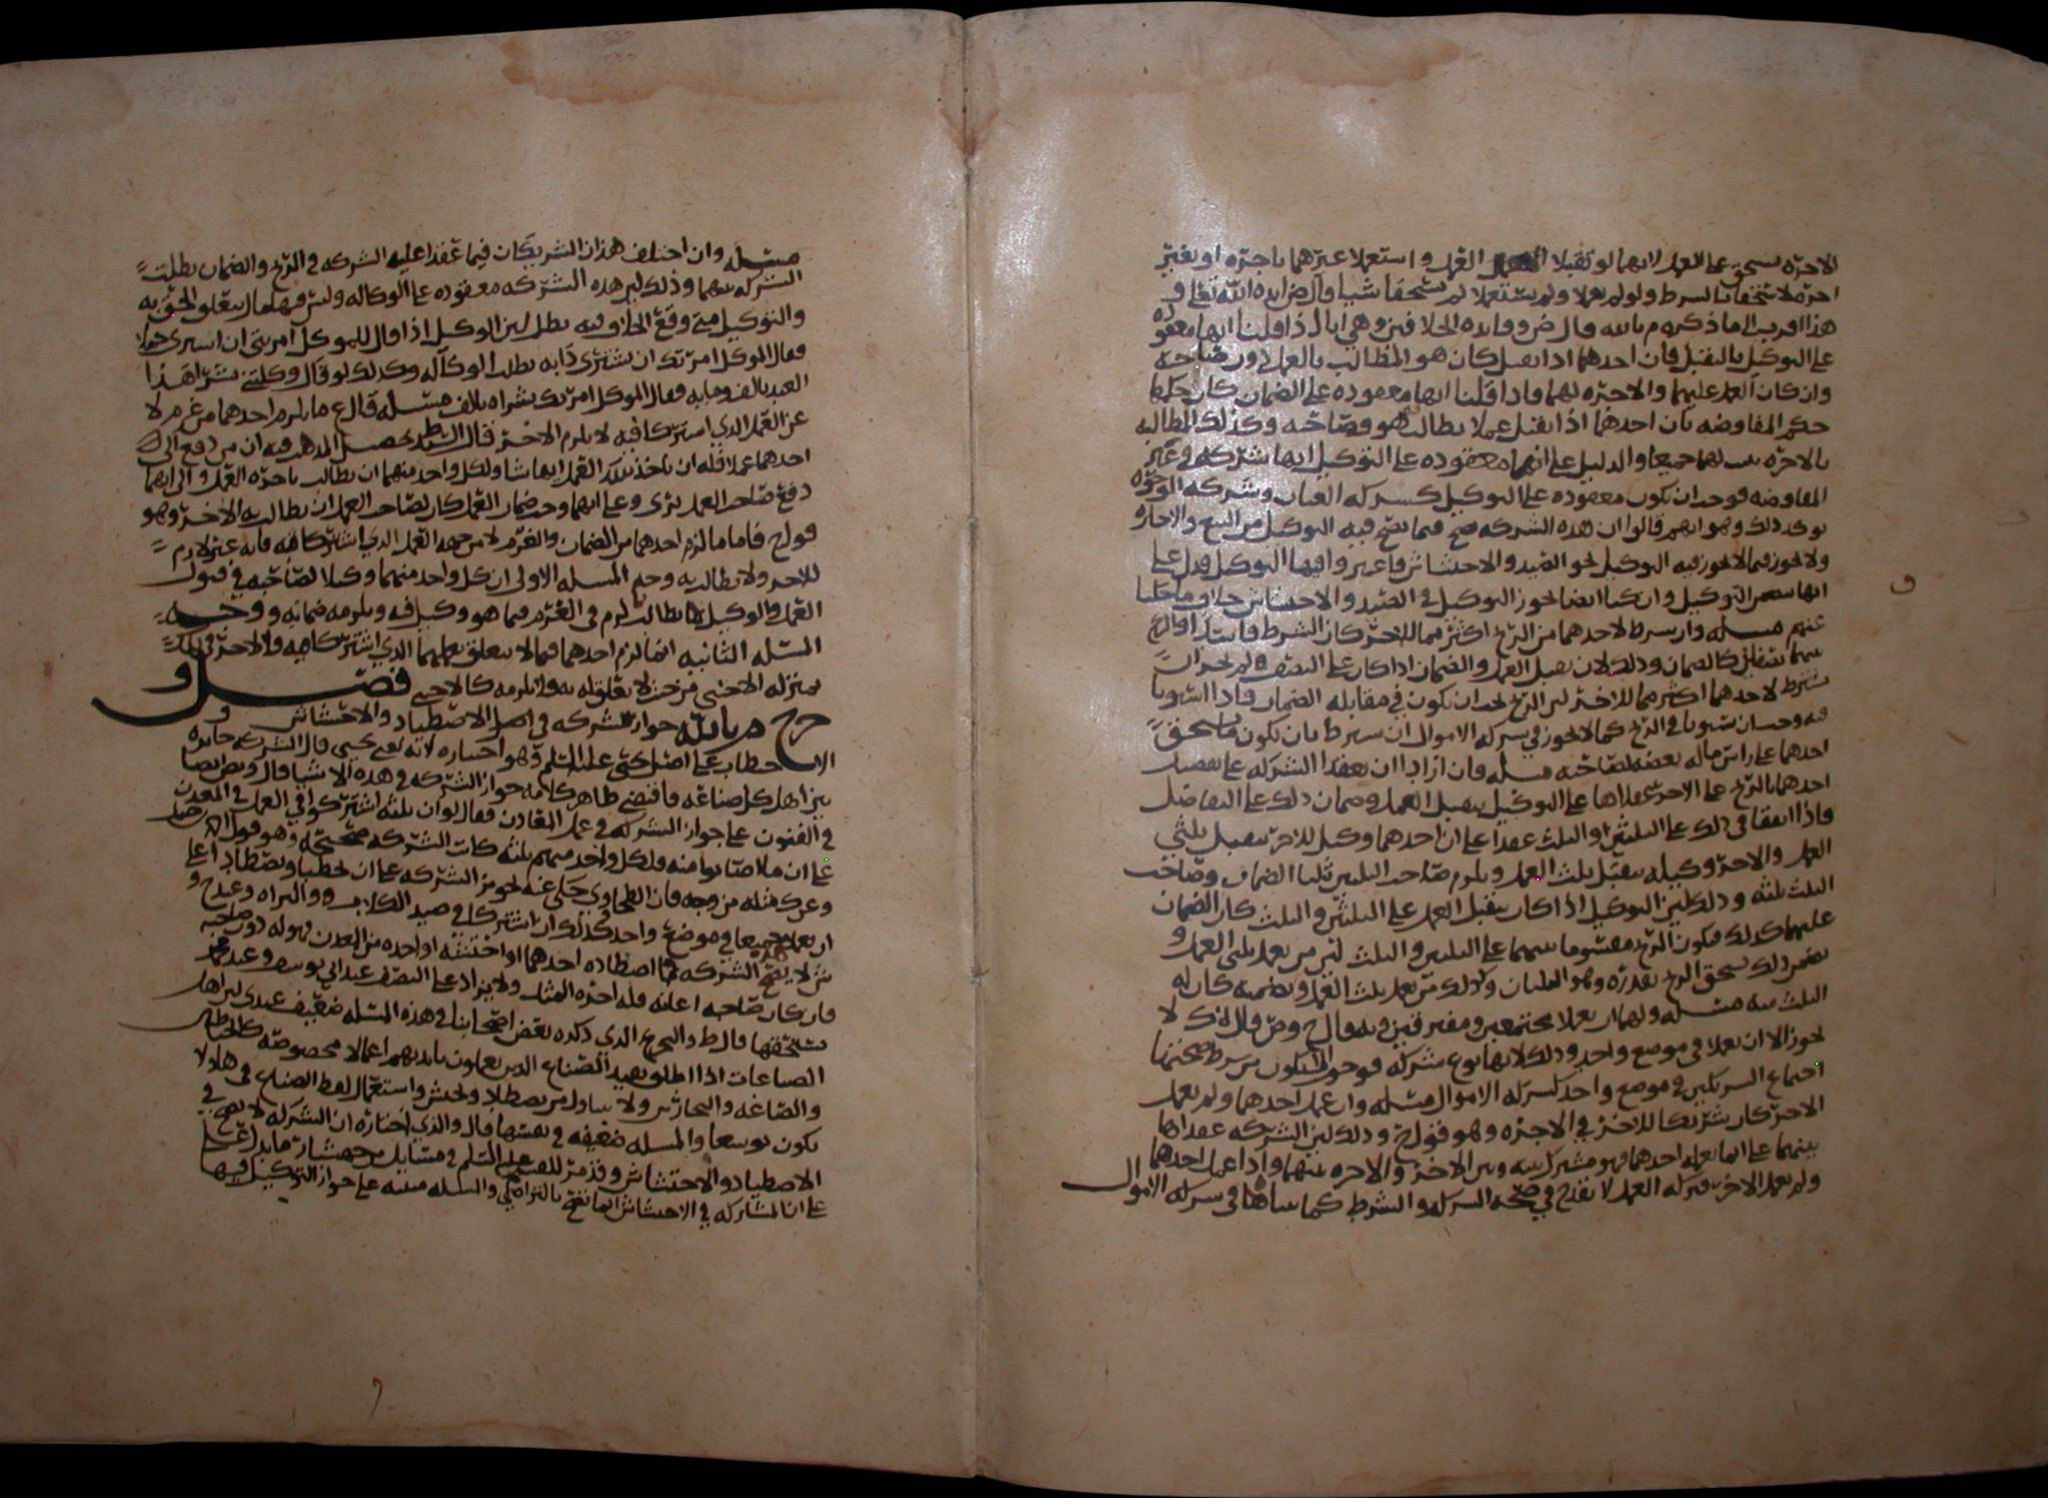 الاجره تستحق على العمل لانهما لو تقبلا العمل واستعملا غيرهما باجره او بغير
اجره لاستحقا بالشرط ولو لم يعملا ولم يستعملا لم يستحقا شيا قال ض ايده الله تعالى و
هذا اقرب الى ما ذكره م بالله قال ض وفايده الخلاف بين وهي انا اذا قلنا انها معقوده
على التوكيل بالتقبل فان احدهما اذا تقبل كان هو المطالب بالعمل دون صاحبه
وان كان العمل عليهما والاجره لهما واذا قلنا انها معقوده على الضمان كان حكمها
حكم المفاوضه بان احدهما اذا تقبل عملا يطالب هو وصاحبه وكذلك المطالبه
بالاجره لهما جميعا والدليل على انها معقوده على التوكيل انها شركه في غير
المفاوضه فوجب ان يكون معقوده على التوكيل كشركه العنان وشركه الوجوه
يوكد ذلك وهو انهم قالوا ان هذه الشركه تصح فيما يصح فيه التوكيل من البيع والاجاره
ولا تجوز فيما لا يجوز فيه التوكيل نحو الصيد والاحتشاش فاعتبروا فيها التوكيل فدل على
انها تتضمن التوكيل وان كنا ايضا نجوز التوكيل في الصيد والاحتشاش خلاف ما حكينا
عنهم مسله وان شرط لاحدهما من الربح اكثر مما للاخر كان الشرط فاسدا والربح
بينهما نصفان كالضمان وذلك لان تقبل العمل والضمان اذا كان على النصف لم يجز ان
يشترط لاحدهما اكثر مما للاخر لان الربح يجب ان يكون في مقابله الضمان فاذا استويا
فيه وجب ان يستويا في الربح كما لا يجوز في شركه الاموال ان يشرط بان يكون ما يستحق
احدهما على راس ماله بعضه لصاحبه مسله فان ارادا ان يعقدا الشركه على تفضيل
احدهما بالربح على الاخر عقداها على التوكيل بتقبل العمل وضمان ذلك على التفاضل
فاذا اتفقا في ذلك على الثلثين والثلث عقدا على ان احدهما وكيل للاخر بتقبل ثلثي
العمل والاخر وكيله بتقبل ثلث العمل ويلزم صاحب الثلثين ثلثا الضمان وصاحب
الثلث ثلثه وذلك لان التوكيل اذا كان بتقبل العمل على الثلثين والثلث كان الضمان
عليهما كذلك فيكون الربح مقسوما بينهما على الثلثين والثلث لان من يعمل ثلثي العمل و
يضمن ذلك يستحق الربح بقدره وهو الثلثان وكذلك من يعمل ثلث العمل ويضمنه كان له
الثلث منه مسله ولهما ان يعملا مجتمعين ومفترقين وبه قال ح وص وقال ك لا
يجوز الا ان يعملا في موضع واحد وذلك لانها نوع شركه فوجب الا يكون من شرط صحتها
اجتماع الشريكين في موضع واحد كشركه الاموال مسله وان عمل احدهما ولم يعمل
الاخر كان شريكا للاخر في الاجره وهو قول ح وذلك لان الشركه عقداها
بينهما على ان ما يعمله احدهما فهو مشترك بينه وبين الاخر والاجره بينهما واذا عمل احدهما
ولم يعمل الاخر فتركه العمل لا يقدح في صحه الشركه والشرط كما بيناه في شركه الاموال
مسله وان اختلف هذان الشريكان فيما عقدا عليه الشركه في الربح والضمان بطلت
الشركه بينهما وذلك لان هذه الشركه معقوده على الوكاله وليس فيها مال يتعلق الحق به
والتوكيل متى وقع الخلاف فيه بطل لان الوكيل اذا قال للموكل امرتني ان اشتري حمارا
فقال الموكل امرتك ان تشتري دابه بطلت الوكاله وكذلك لو قال وكلتني بشرا هذا
العبد بالف ومايه وقال الموكل امرتك بشراه بالف مسله قال ع ما يلزم احدهما من غرم لا
عن العمل الذي اشتركا فيه لا يلزم الاخر قال السيد ط تحصيل المذهب فيه ان من دفع الى
احدهما عملا فله ان ياخذ بذلك العمل ايهما شا ولكل واحد منهما ان يطالب باجره العمل والى ايهما
دفع صاحب العمل بري وعلى ايهما وجب ضمان العمل كان لصاحب العمل ان يطالب به الاخر وهو
قول ح فاما ما لزم احدهما من الضمان والغرم لا من جهه العمل الذي اشتركا فيه فانه غير لازم
للاخر ولا يطالب به وجه المسله الاولى ان كل واحد منهما وكيل لصاحبه في قبول
العمل والوكيل كما يطالب لزم في الغرم فيما هو وكيل فيه ويلزمه ضمانه ووجه
المسله الثانيه ان ما لزم احدهما فيما لا يتعلق بعملهما الذي اشتركا فيه فالاخر في ذلك
بمنزله الاجنبي من حيث لا تعلق له به ولا يلزمه كالاجنبي فصل و
خرج م بالله جواز الشركه في اصل الاصطياد والاحتشاش و
الاحتطاب على اصل يحيى عليه السلم وهو اختياره لانه نعني يحيى قال الشركه جايزه
بين اهل كل صناعه فاقتضى ظاهر كلامه جواز الشركه في هذه الاشيا قال ونص ايضا
في الفنون على جواز الشركه في عمل المعادن فقال لو ان ثلثه اشتركوا في العمل في المعدن
على ان ما اصابوا منه فلكل واحد منهم ثلثه كانت الشركه صحيحه وهو قول احمد بن حنبل
وعن ك مثله من وجه فان الطحاوي حكى عنه نحو من الشركه على ان يحتطبا ويصطادا على
ان يعملا جميعا في موضع واحد وكذلك ان اشتركا في صيد الكلاب و والبزاه وعند ح و
ش لا يصح الشركه فما اصطاده احدهما او احتشه او اخذه من المعدن فهو له دون صاحبه
فان كان صاحبه اعانه فله اجره المثل ولا يزاد على النصف عند ابي يوسف وعند محمد
يستحقها قال ط والتخريج الذي ذكره بعض اصحابنا في هذه المسله ضعيف عندي لان اهل
الصناعات اذا اطلق يفيد الصناع الذين يعملون بايديهم اعمالا مخصوصه كالخياطه
والصاغه والنجارين ولا يتناول من يصطاد ويحتش واستعمال لفظ الصناع في هاولا
يكون توسعا والمسله ضعيفه في نفسها قال والذي اختاره ان الشركه لا تصح في
الاصطياد والاحتشاش وقد مر للقسم عليه السلم في مسايل جهشيار ما يدل على
على ان المشاركه في الاحتشاش انما تصح بالتراضي والمسله مبنيه على جواز التوكيل فيها